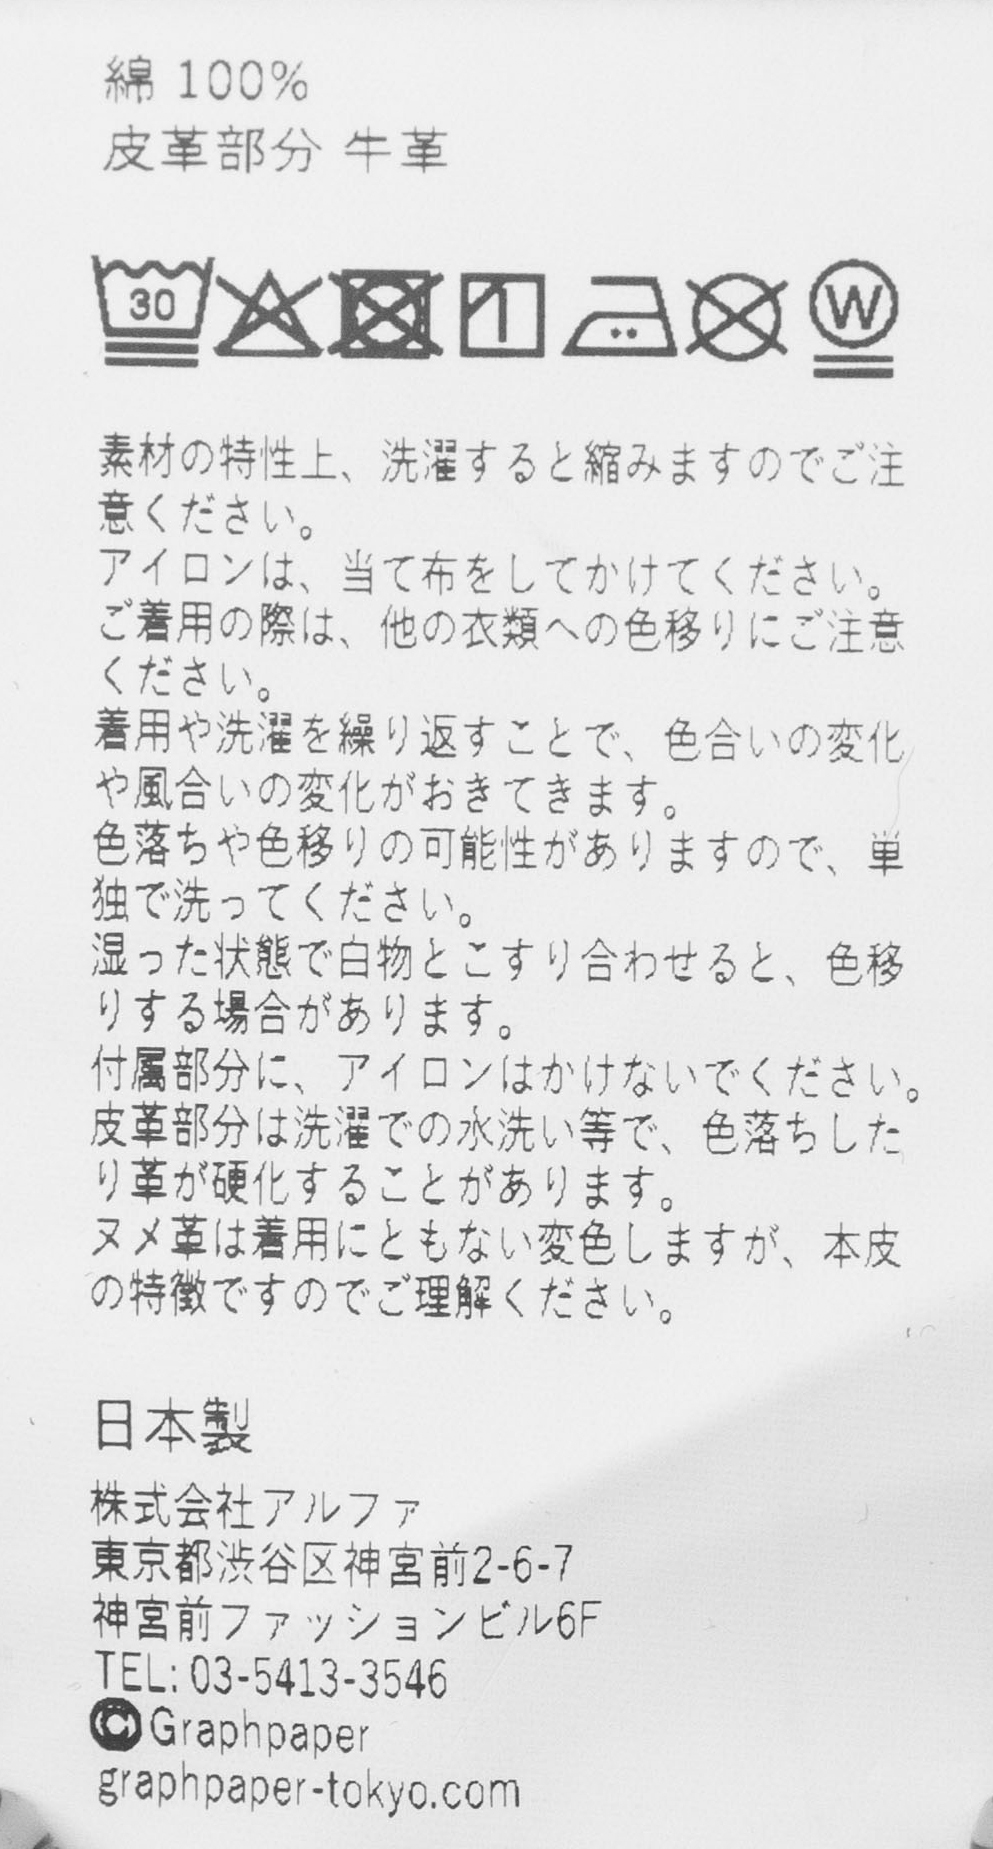 綿 100%
皮革部分 牛革
30
W
素材の特性上、洗濯すると縮みますのでご注
意ください。
アイロンは、当て布をしてかけてください。
ご着用の際は、他の衣類への色移りにご注意
ください。
着用や洗濯を繰り返すことで、色合いの変化
や風合いの変化がおきてきます。
色落ちや色移りの可能性がありますので、単
独で洗ってください。
湿った状態で白物とこすり合わせると、色移
りする場合があります。
付属部分に、アイロンはかけないでください。
皮革部分は洗濯での水洗い等で、色落ちした
り革が硬化することがあります。
ヌメ革は着用にともない変色しますが、本皮
の特徴ですのでご理解ください。
日本製
株式会社アルファ
東京都渋谷区神宮前2-6-7
神宮前ファッションビル6F
TEL: 03-5413-3546
©Graphpaper
graphpaper-tokyo.com